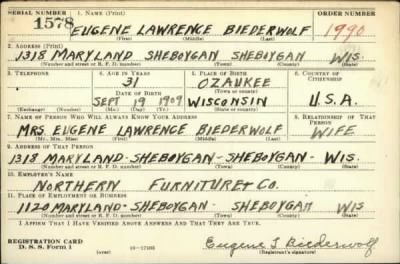 SERIAL NUMBER 1. NAME (Print) ORDER NUMBER
1578 EUGENE LAWRENCE BIEDERWOLF 1990
(First) (Middle) (Last)
2. ADDRESS (Print)
1318 MARYLAND SHEBOYGAN SHEBOYGAN WIS.
(Number and street or R. F. D. number) (Town) (County) (State)
3. TELEPHONE 4. AGE IN YEARS 5. PLACE OF BIRTH 6. COUNTRY OF CITIZENSHIP
31 OZAUKEE
DATE OF BIRTH (Town or county)
SEPT 19 1909 WISCONSIN U.S.A.
(Exchange) (Number) (Mo.) (Day) (Yr.) (State or country)
7. NAME OF PERSON WHO WILL ALWAYS KNOW YOUR ADDRESS 8. RELATIONSHIP OF THAT PERSON
MRS. EUGENE LAWRENCE BIEDERWOLF WIFE
(Mr., Mrs., Miss) (First) (Middle) (Last)
9. ADDRESS OF THAT PERSON
1318 MARYLAND-SHEBOYGAN-SHEBOYGAN- WIS.
(Number and street or R. F. D. number) (Town) (County) (State)
10. EMPLOYER'S NAME
NORTHERN FURNITURE CO.
11. PLACE OF EMPLOYMENT OR BUSINESS
1120 MARYLAND-SHEBOYGAN- SHEBOYGAN WIS
(Number and street or R. F. D. number) (Town) (County) (State)
I AFFIRM THAT I HAVE VERIFIED ABOVE ANSWERS AND THAT THEY ARE TRUE.
REGISTRATION CARD
D. S. S. Form 1 (over) Eugene L Biederwolf
(Registrant's signature)